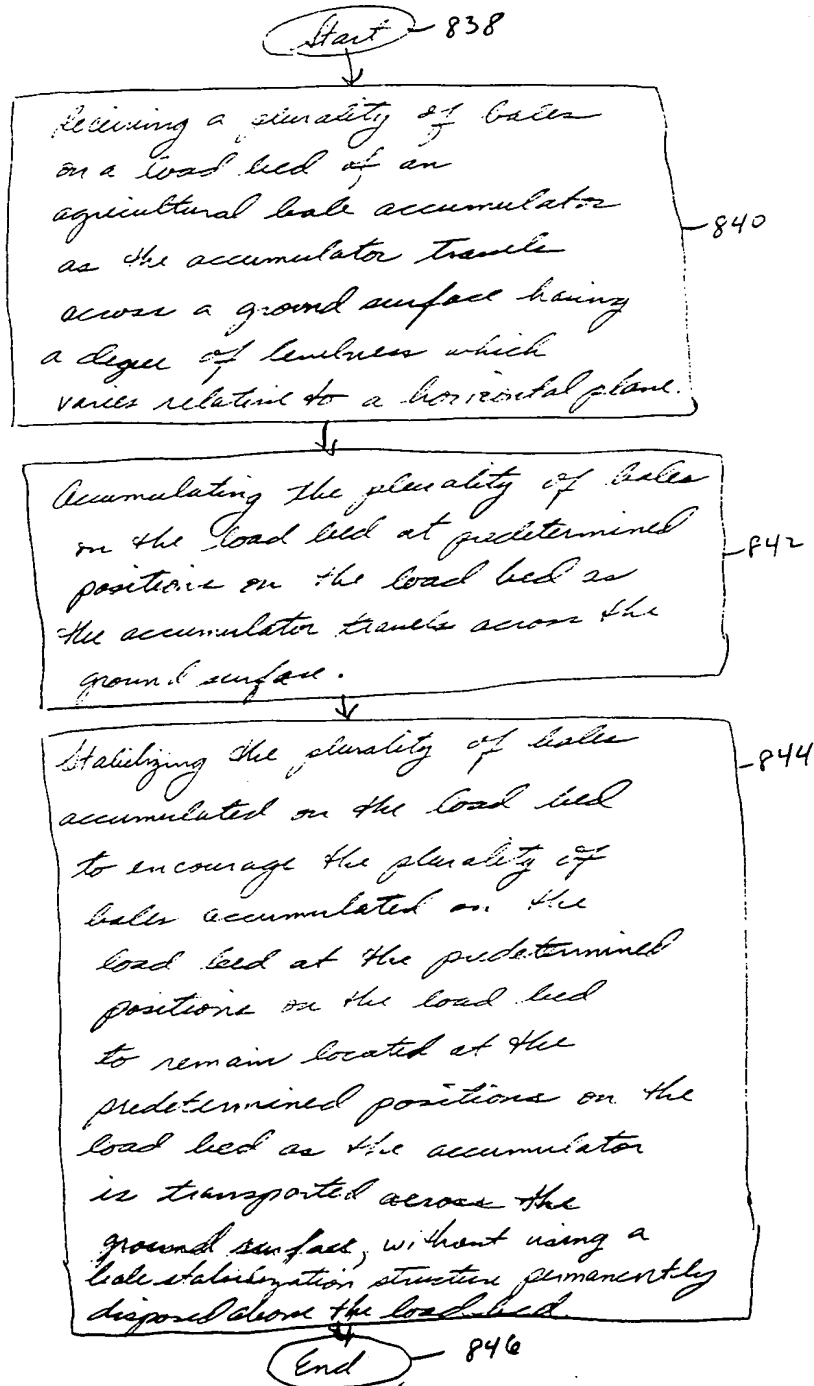 Start 838
Receiving a plurality of bales
on a load bed of an
agricultural bale accumulator
as the accumulator travels
across a ground surface having
a degree of levelness which
varies relative to a horizontal plane.
840
Accumulating the plurality of bales
on the load bed at predetermined
positions on the load bed as
the accumulator travels across the
ground surface.
842
Stabilizing the plurality of bales
accumulated on the load bed
to encourage the plurality of
bales accumulated on the
load bed at the predetermined
positions on the load bed
to remain located at the
predetermined positions on the
load bed as the accumulator
is transported across the
ground surface, without using a
bale stabilization structure permanently
disposed above the load bed.
844
End 846